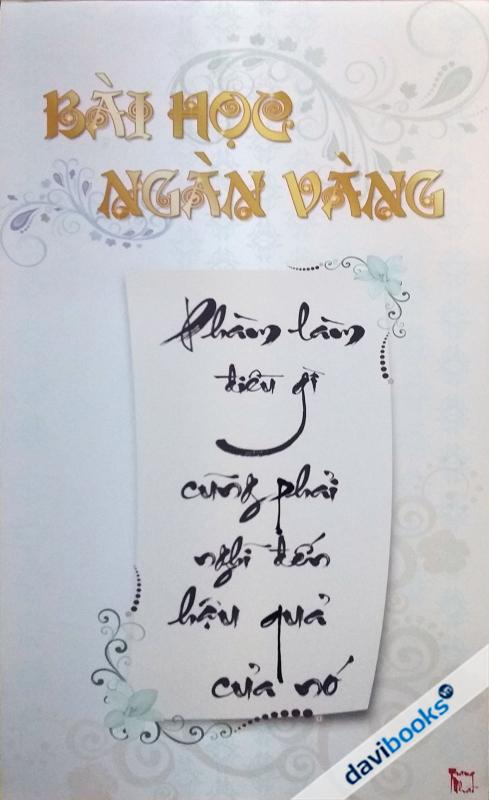 BÀI HỌC
NGÀN VÀNG
Phàm làm
điều gì
cũng phải
nghĩ đến
hậu quả
của nó
davibooks.vn